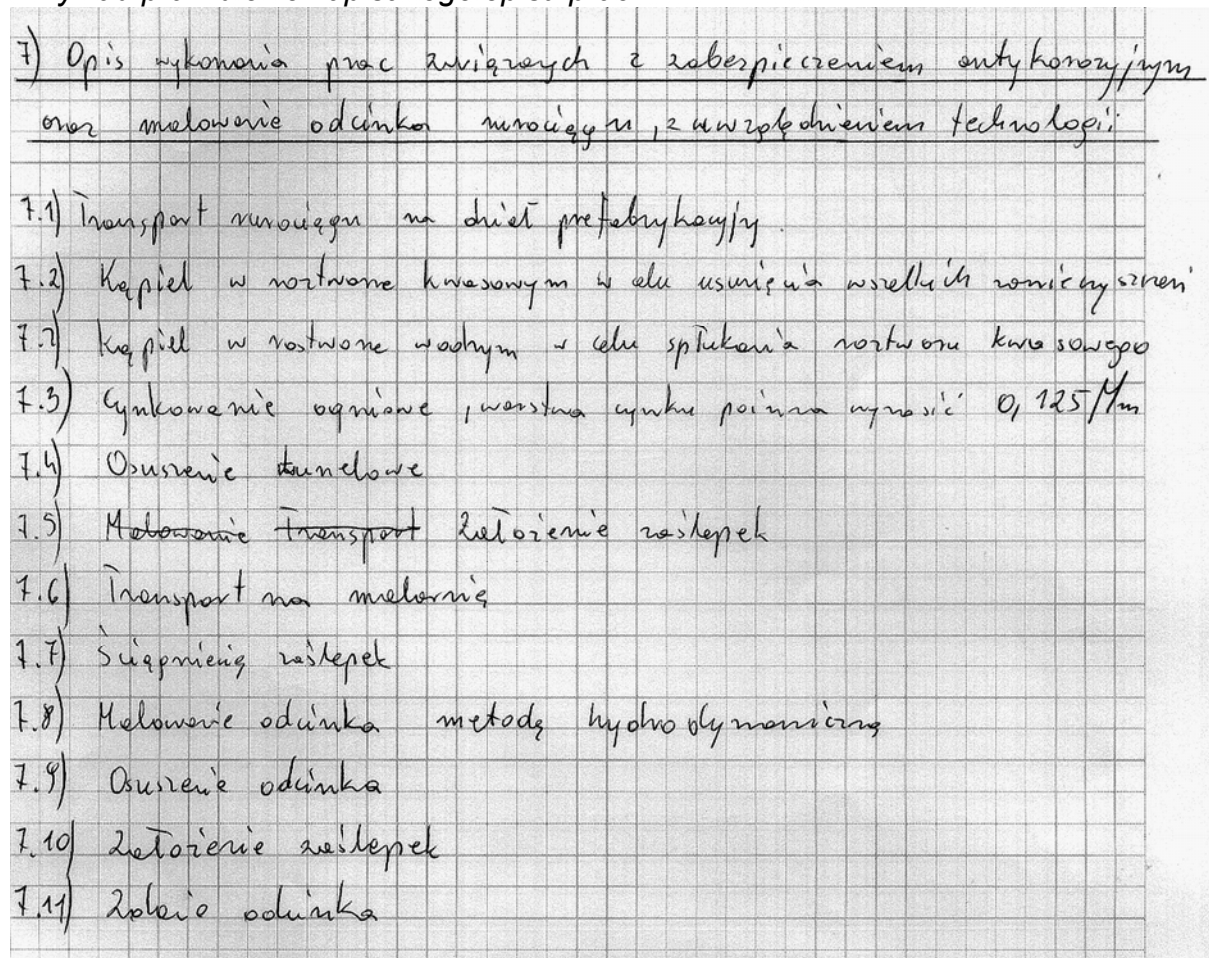 7) Opis wykonania prac związanych z zabezpieczeniem antykorozyjnym
oraz malowanie odcinka rurociągu, z uwzględnieniem technologii
7.1) Transport rurociągu na dział prefabrykacyjy
7.2) Kąpiel w roztworze kwasowym w celu usunięcia wszelkich zanieczyszczeń
7.2) Kąpiel w roztworze wodnym w celu spłukania roztworu kwasowego
7.3) Cynkowanie ogniowe, warstwa cynku poinna wynosić 0,125 Mm
7.4) Osuszenie tunelowe
7.5) Malowanie Transport Założenie zaślepek
7.6) Transport na malarnię
7.7) Ściągnienię zaślepek
7.8) Malowanie odcinka metodą hydrodynamiczną
7.9) Osuszenie odcinka
7.10) Założenie zaślepek
7.11) odcinka